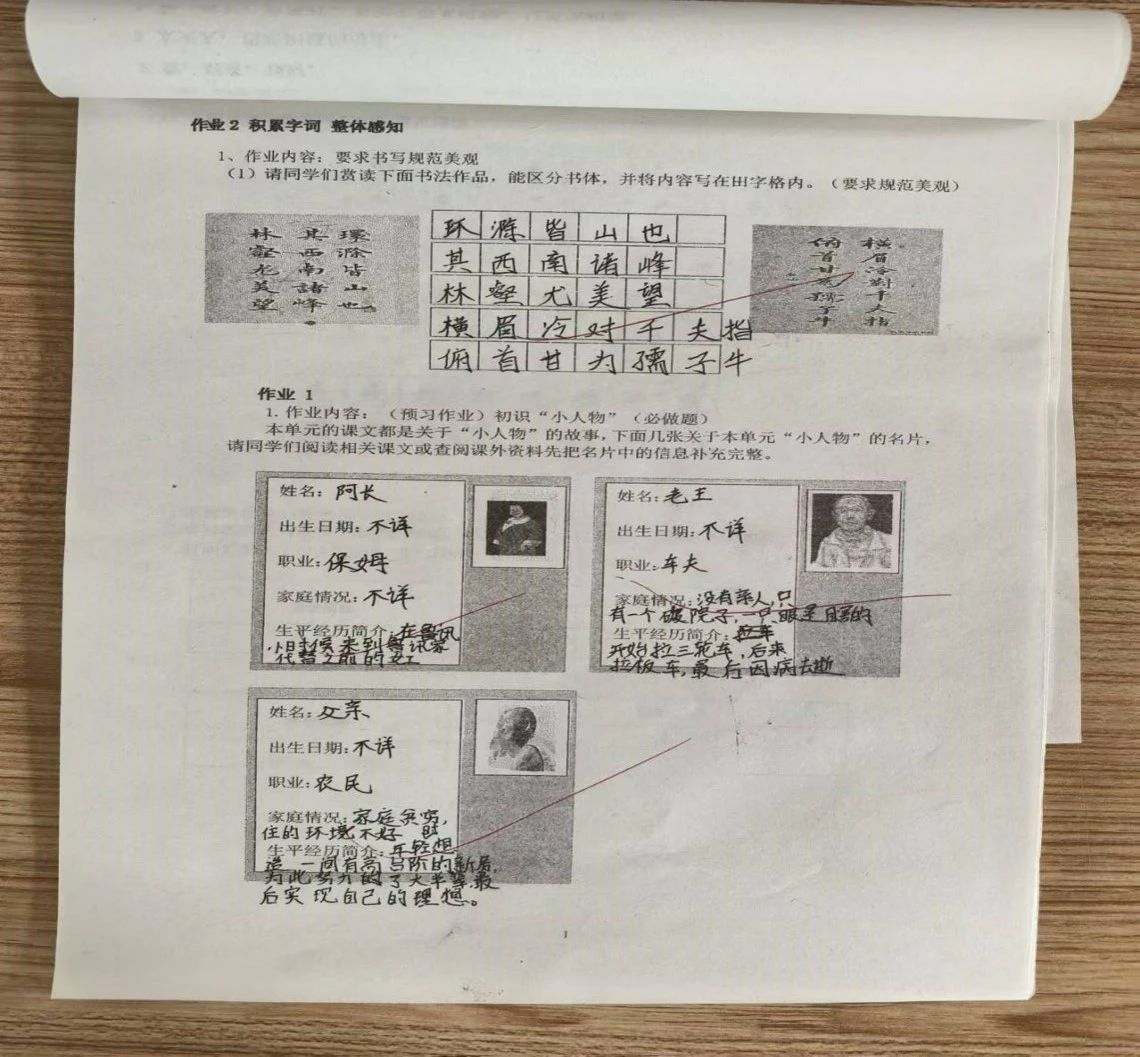 作业2 积累字词 整体感知
1、作业内容：要求书写规范美观
（1）请同学们赏读下面书法作品，能区分书体，并将内容写在田字格内。（要求规范美观）
環滁皆山也
其西南諸峰
林壑尤美望
环滁皆山也
其西南诸峰
林壑尤美望
横眉冷对千夫指
俯首甘为孺子牛
横眉冷對千夫指
俯首甘為孺子牛
作业 1
1. 作业内容：（预习作业）初识“小人物”（必做题）
本单元的课文都是关于“小人物”的故事，下面几张关于本单元“小人物”的名片，
请同学们阅读相关课文或查阅课外资料先把名片中的信息补充完整。
姓名：阿长
出生日期：不详
职业：保姆
家庭情况：不详
生平经历简介：在鲁讯
小时候来到鲁讯家
代替之前的女工
姓名：老王
出生日期：不详
职业：车夫
家庭情况：没有亲人，只
有一个破院子，一只眼是瞎的
生平经历简介：
开始拉三轮车，后来
拉板车，最后因病去逝
姓名：父亲
出生日期：不详
职业：农民
家庭情况：家庭贫穷，
住的环境不好
生平经历简介：年轻时想
造一间有高台阶的新屋，
为此努力的了大半辈，最
后实现自己的理想。
1